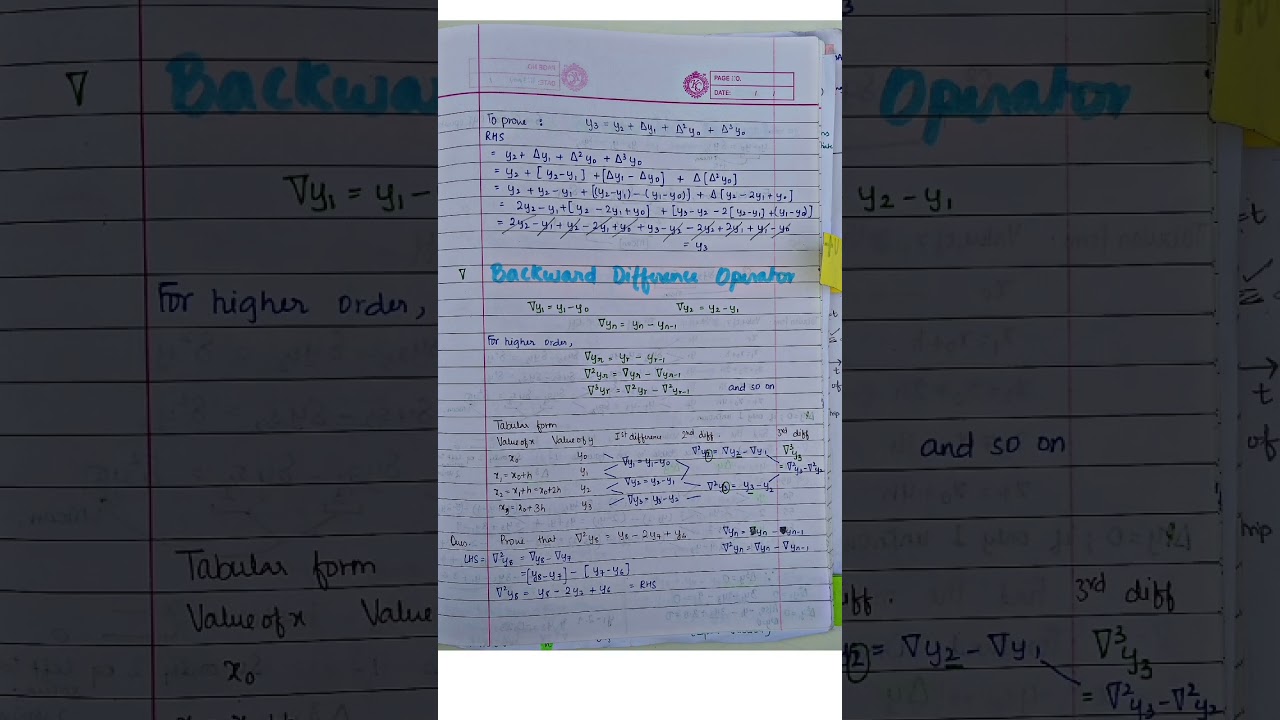 PAGE NO.
DATE: / /
To prove : y₃ = y₂ + Δy₁ + Δ²y₀ + Δ³y₀
RHS
= y₂ + Δy₁ + Δ²y₀ + Δ³y₀
= y₂ + [y₂-y₁] + [Δy₁ - Δy₀] + Δ[Δ²y₀]
= y₂ + y₂ - y₁ + [(y₂-y₁) - (y₁-y₀)] + Δ[y₂ - 2y₁ + y₀]
= 2y₂ - y₁ + [y₂ - 2y₁ + y₀] + [y₃ - y₂ - 2[y₂-y₁] + (y₁-y₀)]
= 2y₂ - y₁ + y₂ - 2y₁ + y₀ + y₃ - y₂ - 2y₂ + 2y₁ + y₁ - y₀
= y₃
∇ Backward Difference Operator
∇y₁ = y₁ - y₀ ∇y₂ = y₂ - y₁
∇yₙ = yₙ - yₙ₋₁
For higher order,
∇yᵣ = yᵣ - yᵣ₋₁
∇²yᵣ = ∇yᵣ - ∇yᵣ₋₁
∇³yᵣ = ∇²yᵣ - ∇²yᵣ₋₁ and so on
Tabular form
Value of x Value of y Ist difference 2nd diff. 3rd diff
x₀ y₀ ∇²y₂ = ∇y₂ - ∇y₁ ∇³y₃
∇y₁ = y₁ - y₀ = ∇²y₃ - ∇²y₂
x₁ = x₀+h y₁
∇y₂ = y₂ - y₁
x₂ = x₁+h = x₀+2h y₂ = y₃ - y₂
∇y₃ = y₃ - y₂
x₃ = x₀+3h y₃
Ques. Prove that ∇²y₈ = y₈ - 2y₇ + y₆ ∇yₙ = yₙ - yₙ₋₁
LHS = ∇²y₈ = ∇y₈ - ∇y₇ ∇²yₙ = ∇yₙ - ∇yₙ₋₁
= [y₈-y₇] - [y₇-y₆]
∇²y₈ = y₈ - 2y₇ + y₆ = RHS